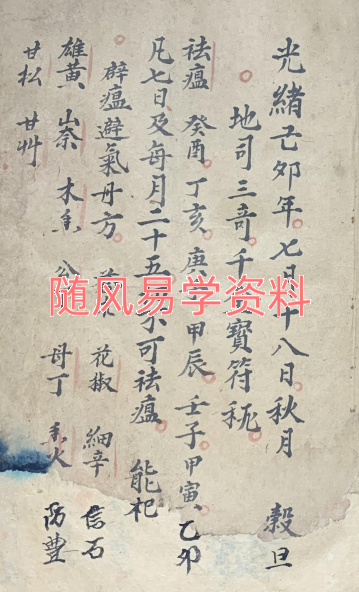 光緒己卯年七月十八日秋月 穀旦
地司三奇千 寶符秘
祛瘟 癸酉 丁亥 庚 甲辰 壬子 甲寅 乙卯
凡七日及每月二十五 不可祛瘟 能杞
辟瘟避氣丹方 花椒 細辛 信石
雄黃 山奈 木香 公 母丁 香 火 防豐
甘松 甘艸
随风易学资料